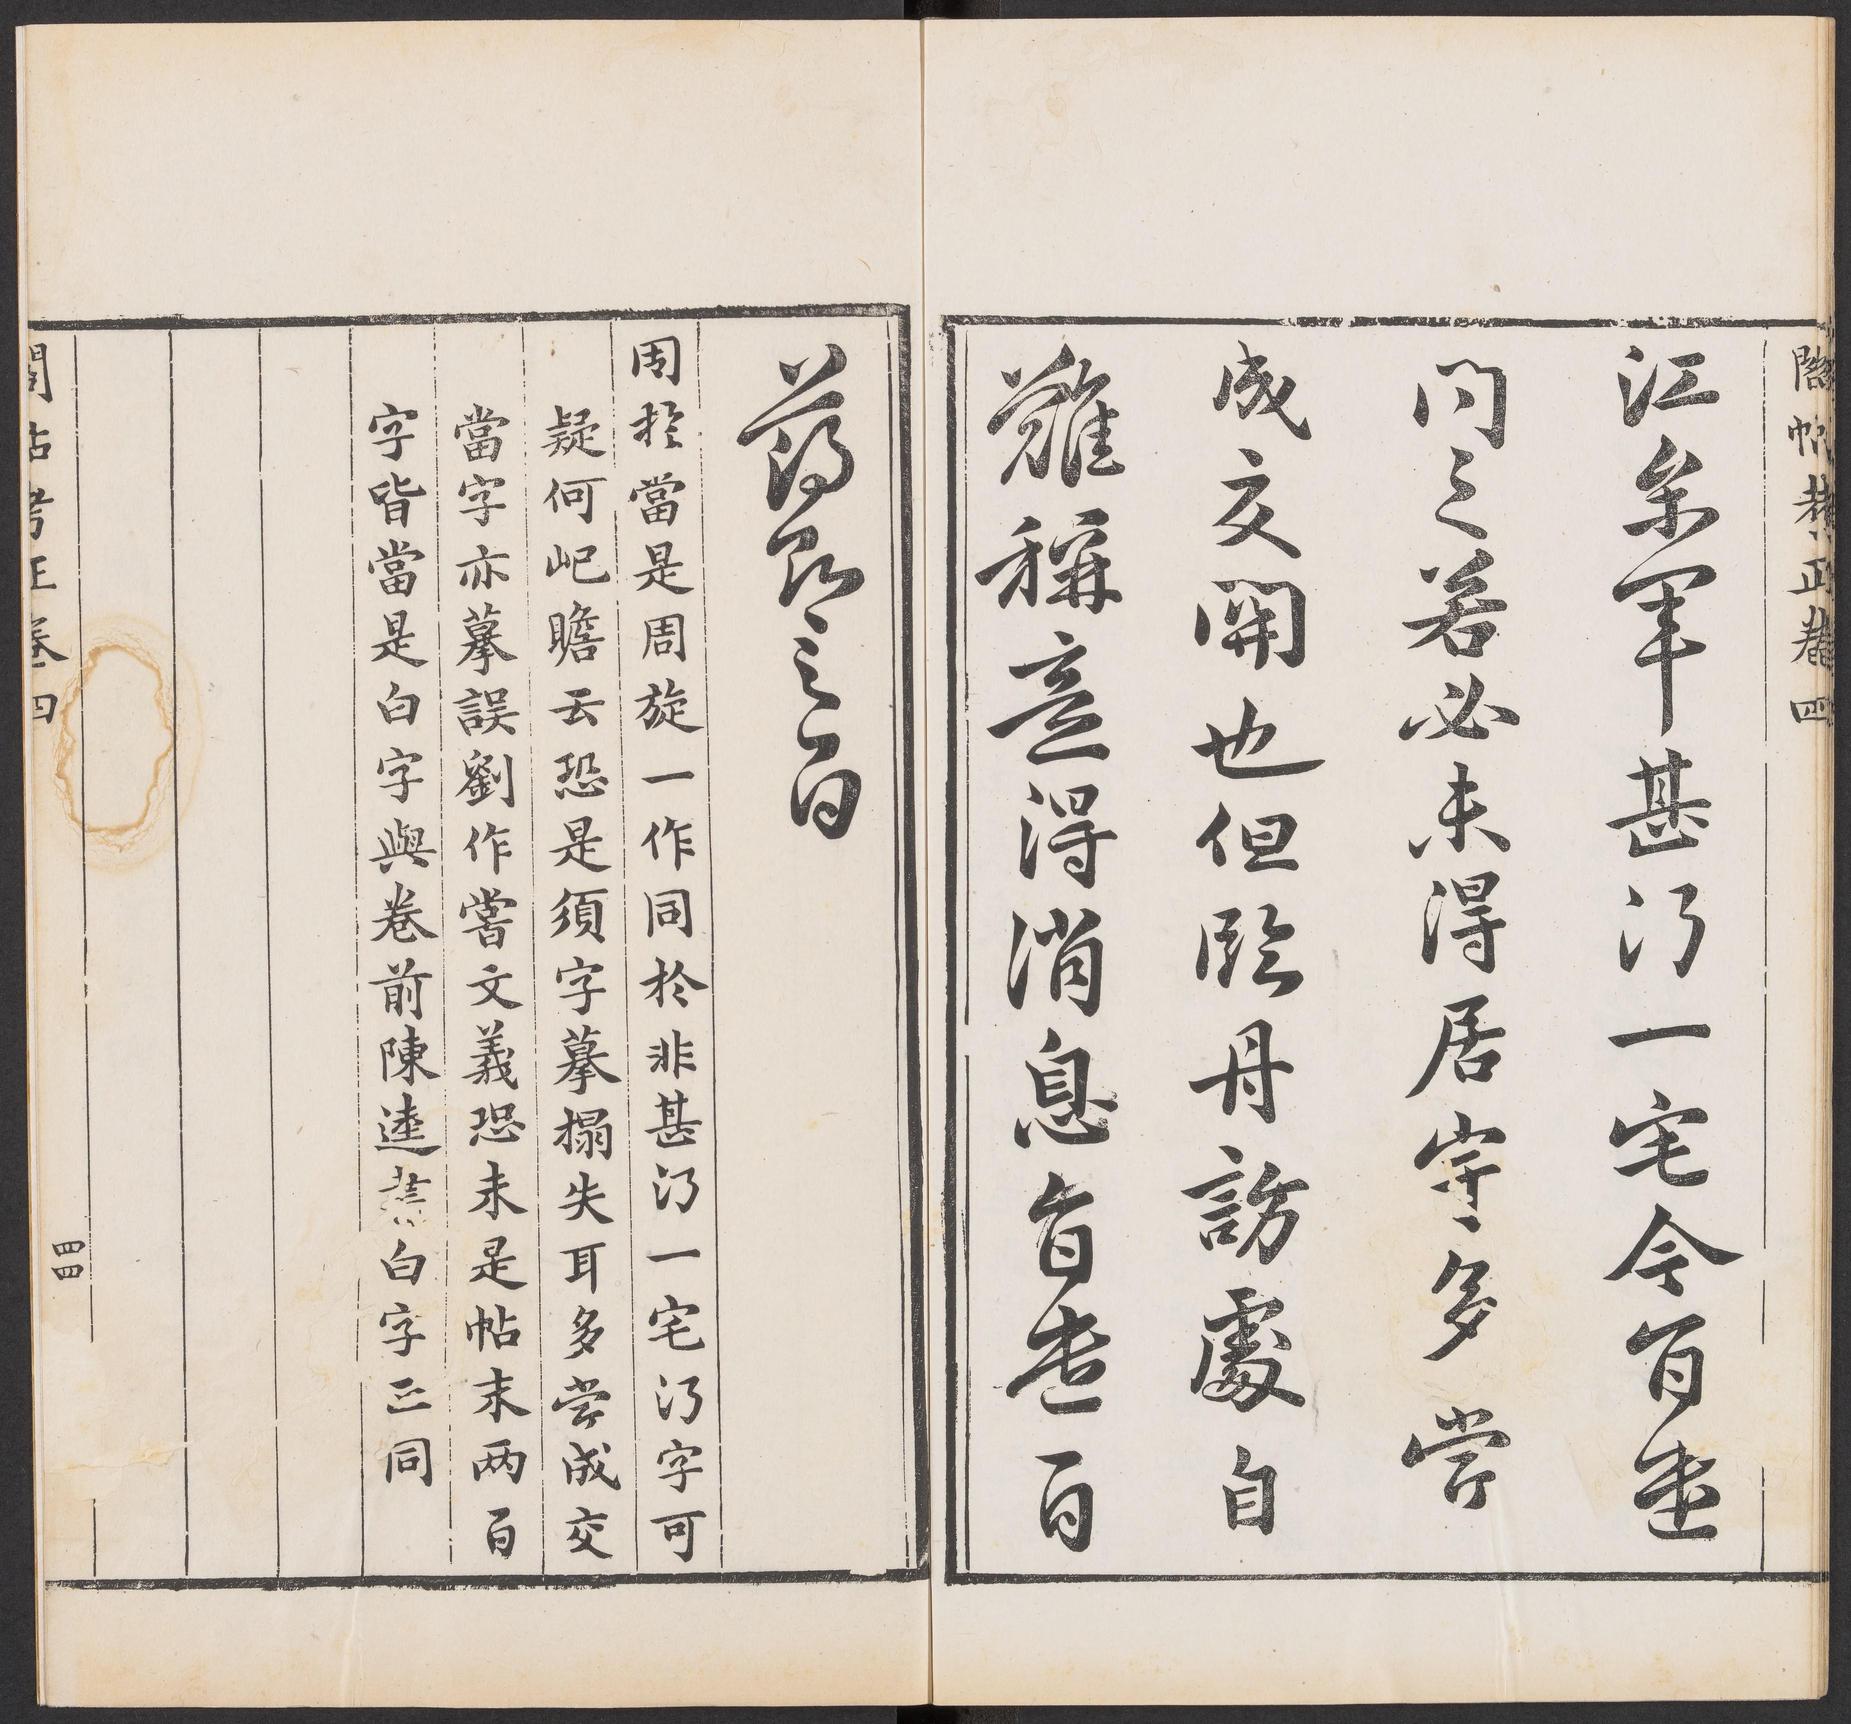 閣帖考正卷四
江參軍甚汅一宅今百書
問之若必未得居宇多嘗
成交關也但臨丹訪處自
難稱意得消息旨書百
薄烝之白
周於當是周旋一作同於非甚汅一宅汅字可
疑何屺瞻云恐是須字摹搨失耳多嘗成交
當字亦摹誤劉作嘗文義恐未是帖末两百
字皆當是白字與卷前陳逵書白字正同
閣帖考正卷四
四四